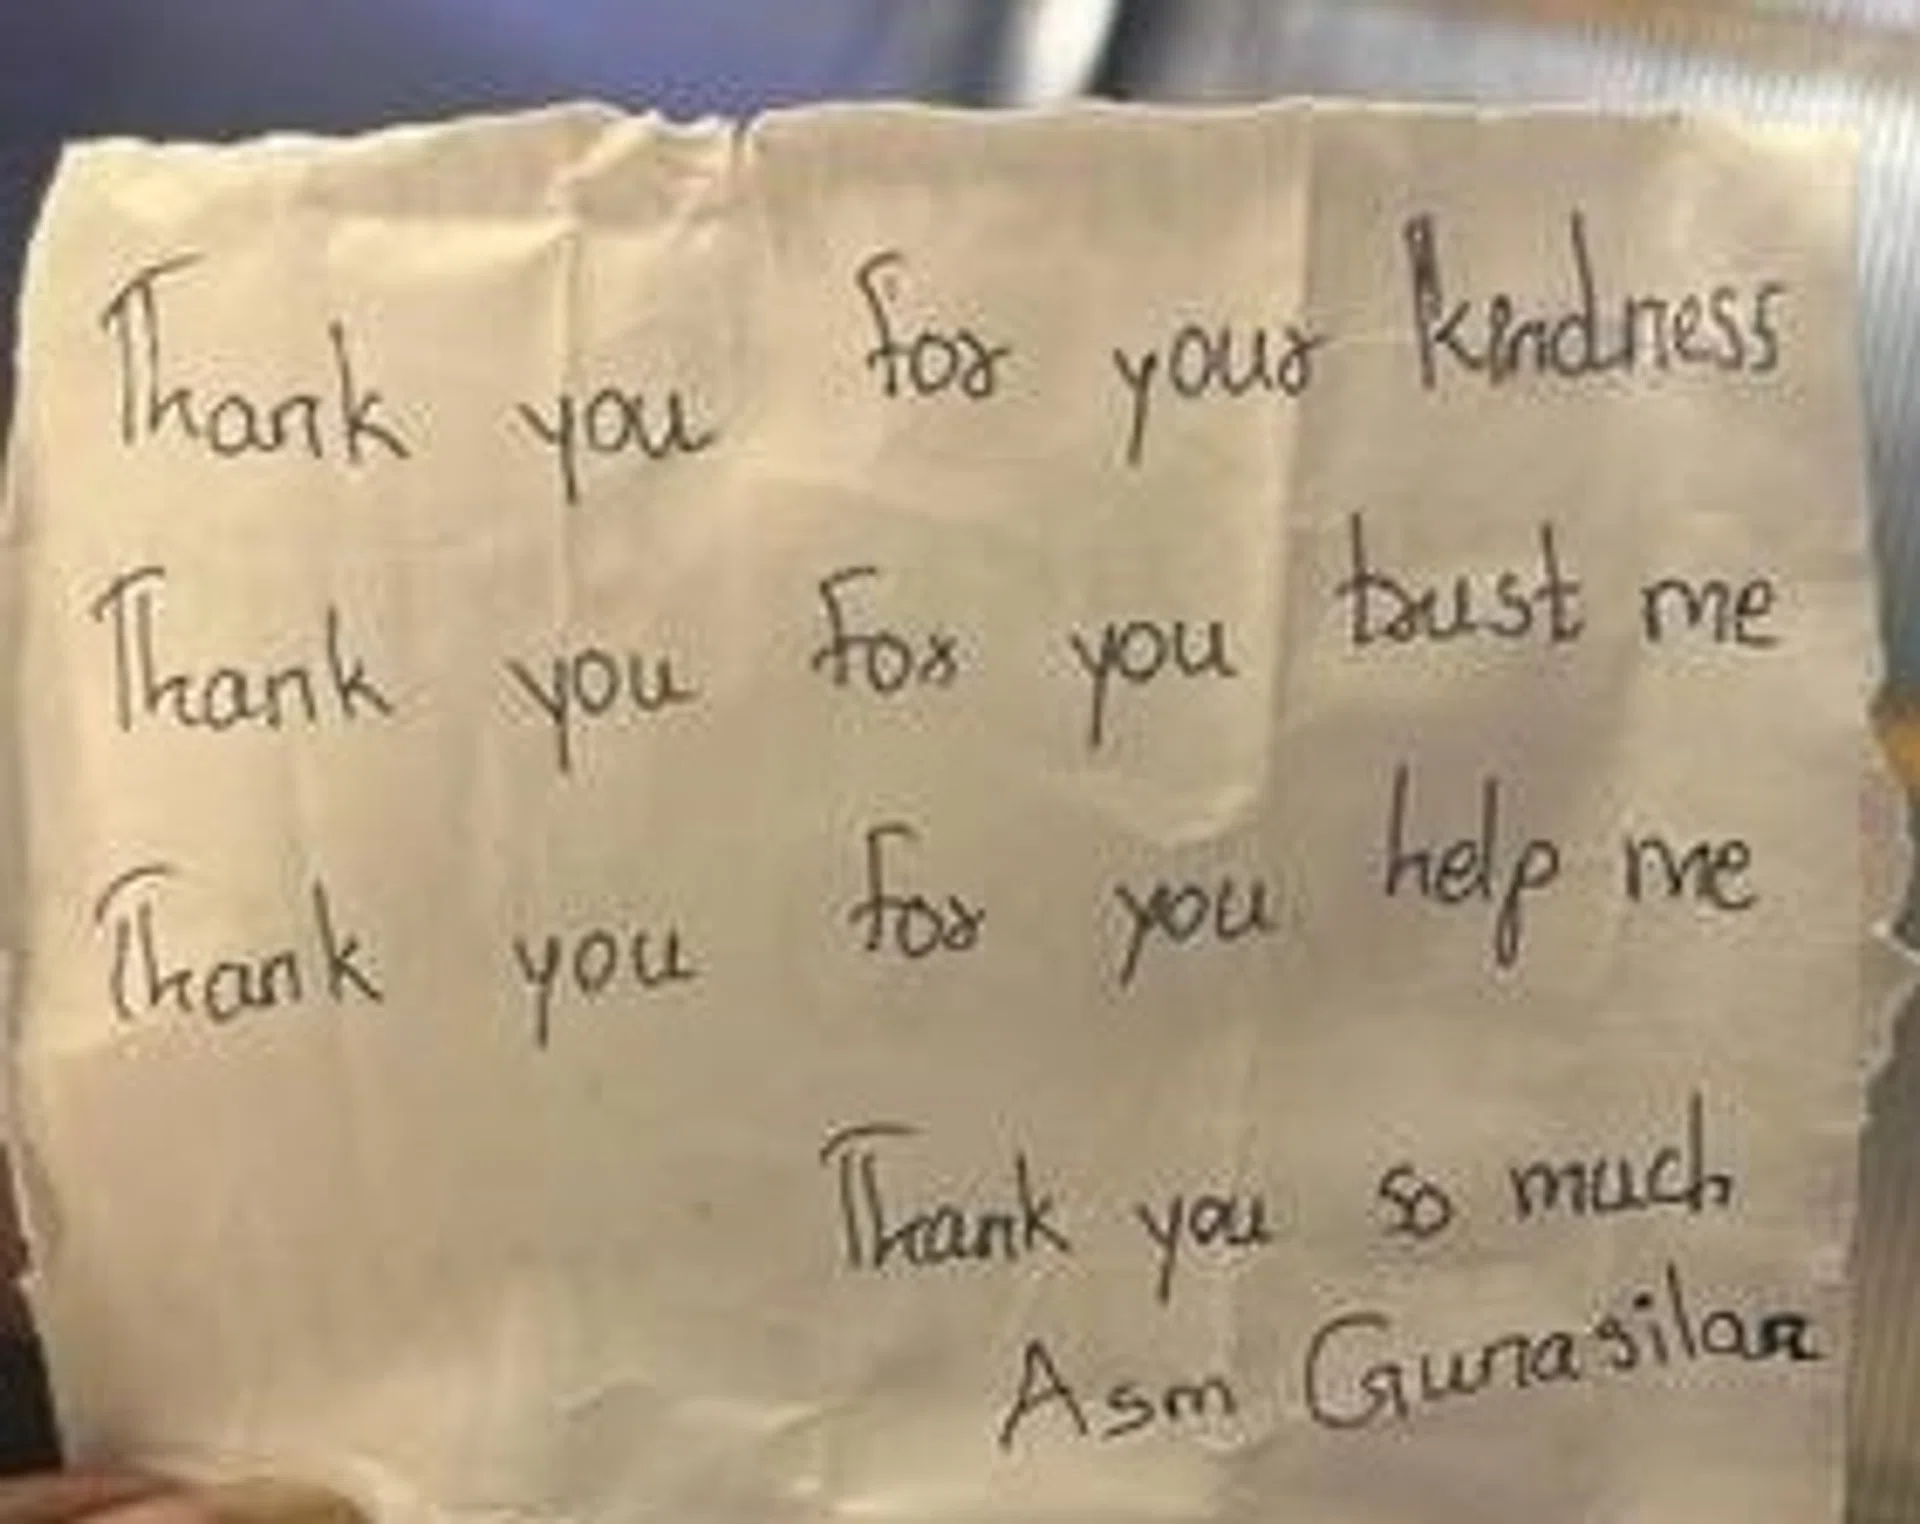 Thank you for your kindness
Thank you for you trust me
Thank you for you help me
Thank you so much
Asm Gunasilan